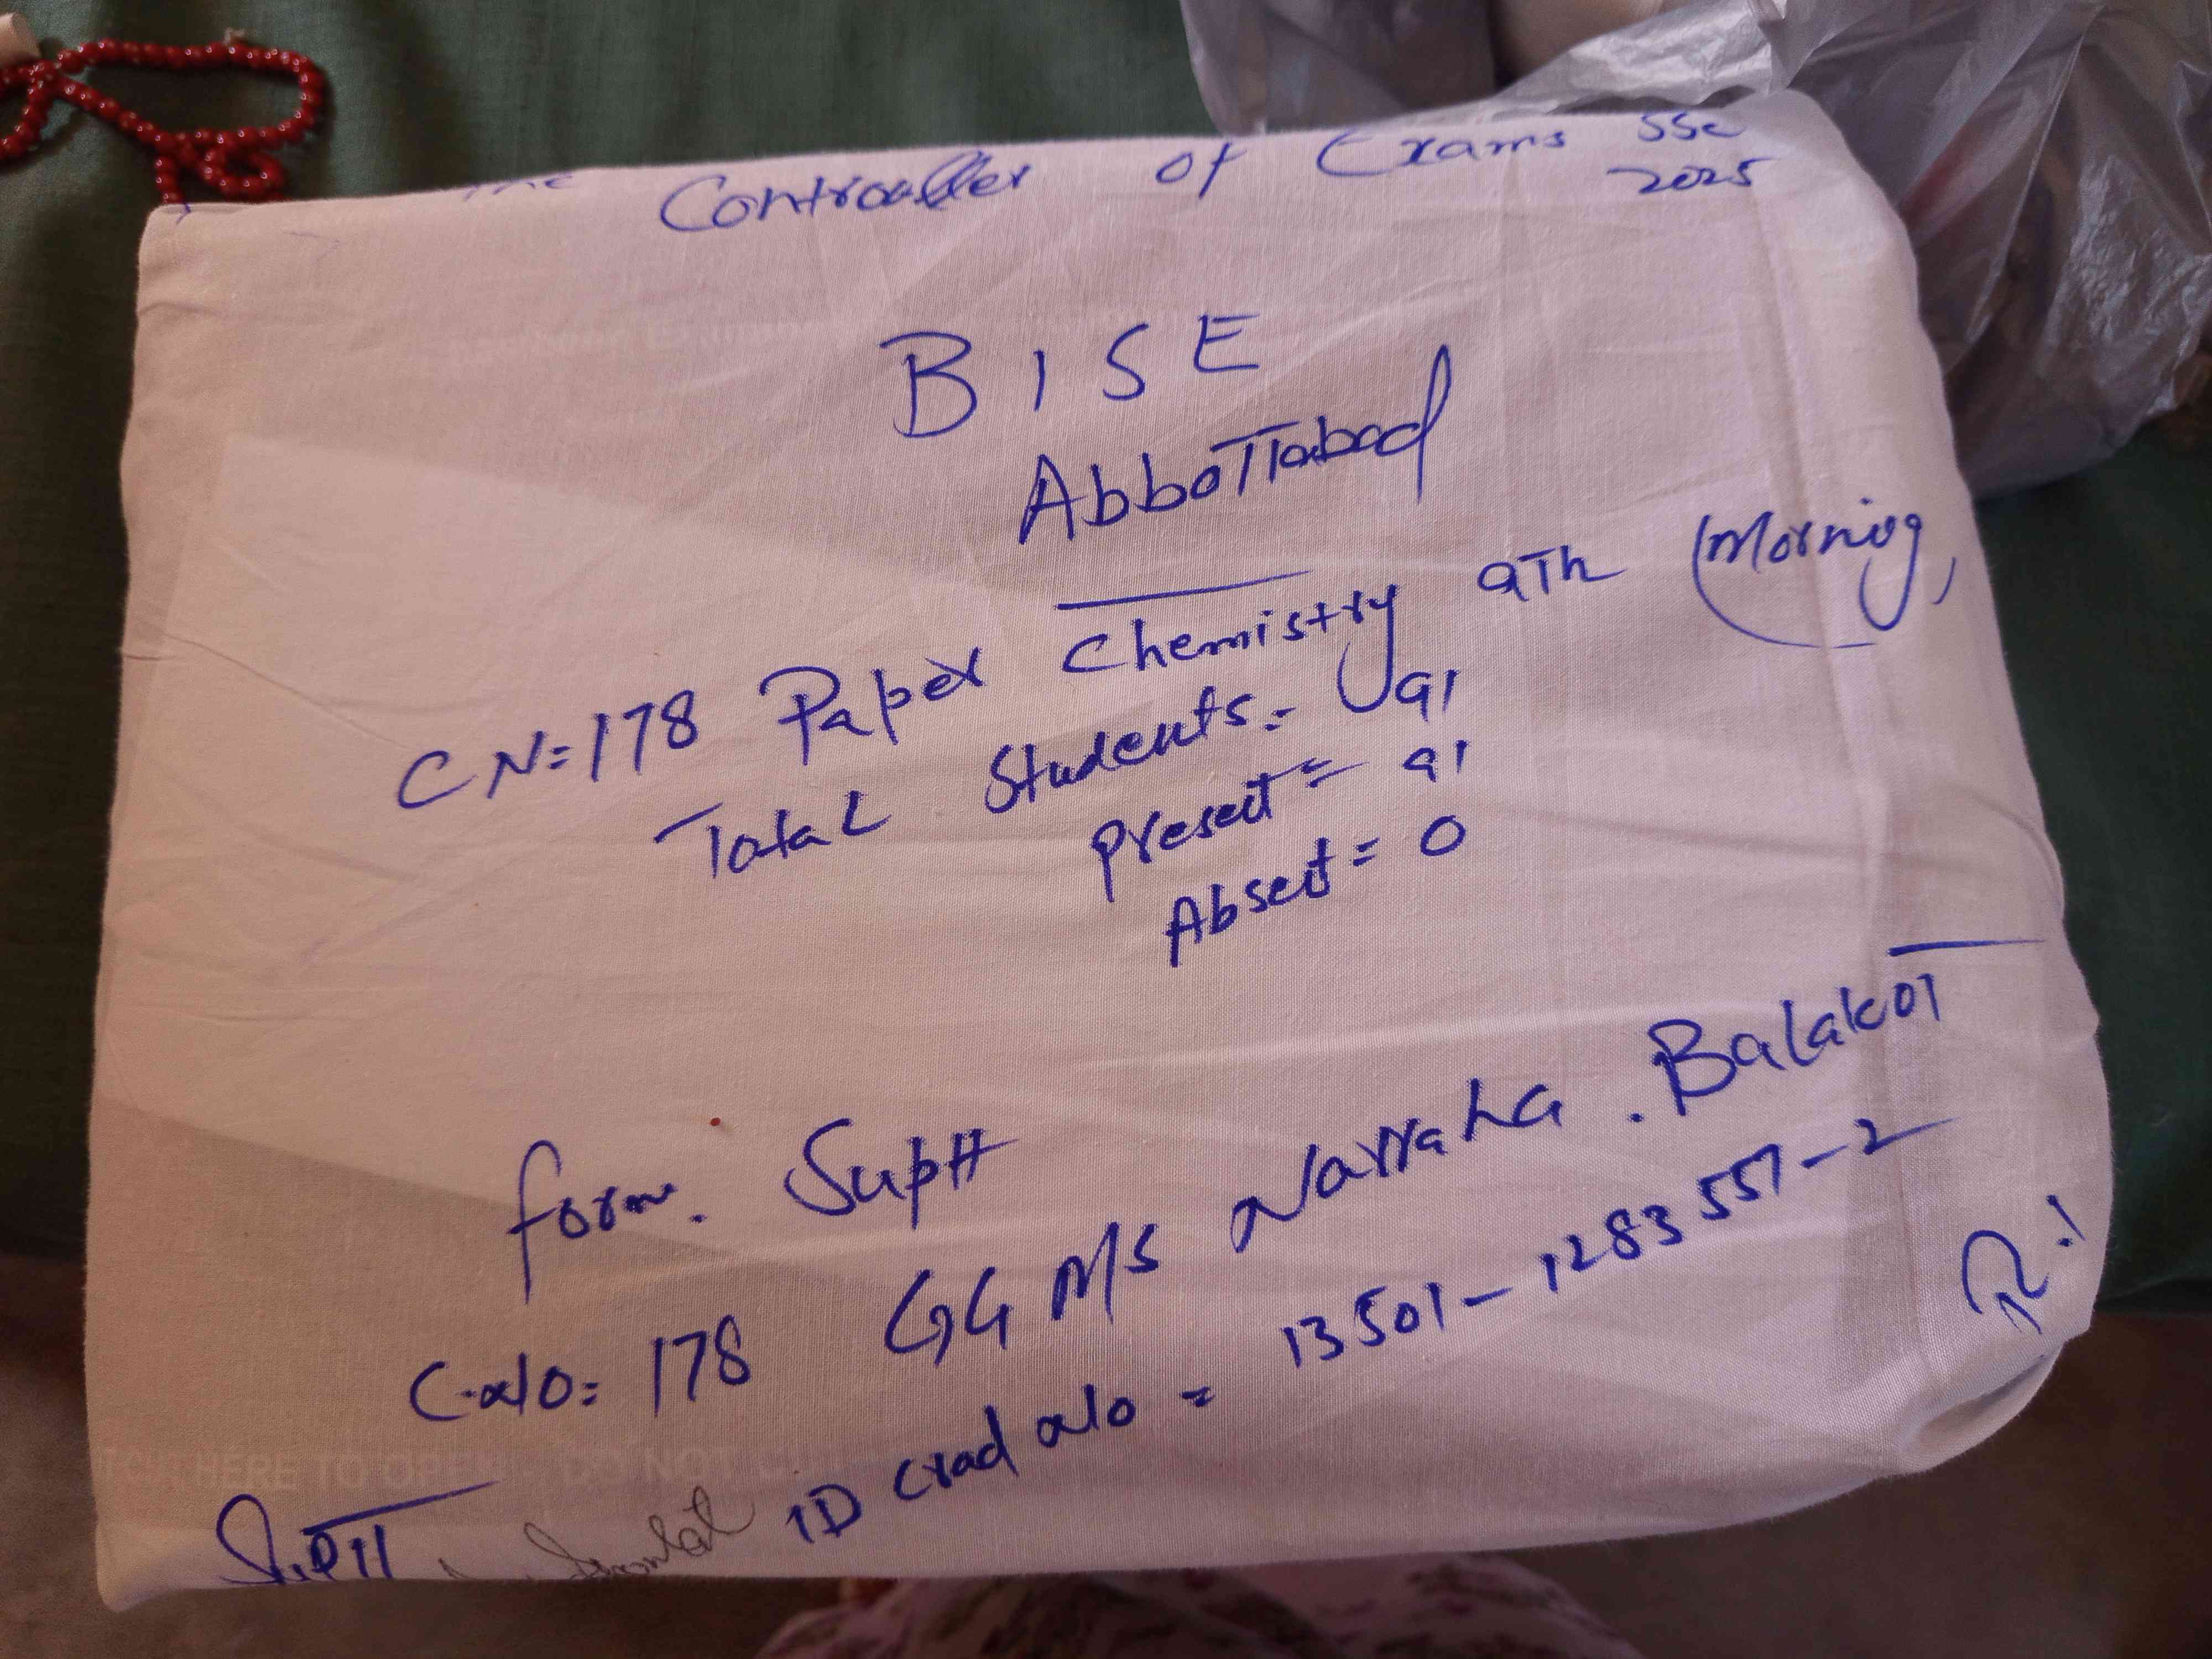 The Controller of Exams SSC
2025
BISE
Abbottabad
CN=178 Paper Chemistry 9Th (Morning)
Total Students = 91
Present = 91
Absent = 0
form. Supdt
C.No= 178 GGMS Narraha . Balakot
ID Crad No = 13501-1283557-2
HERE TO OPEN DO NOT
Supdt